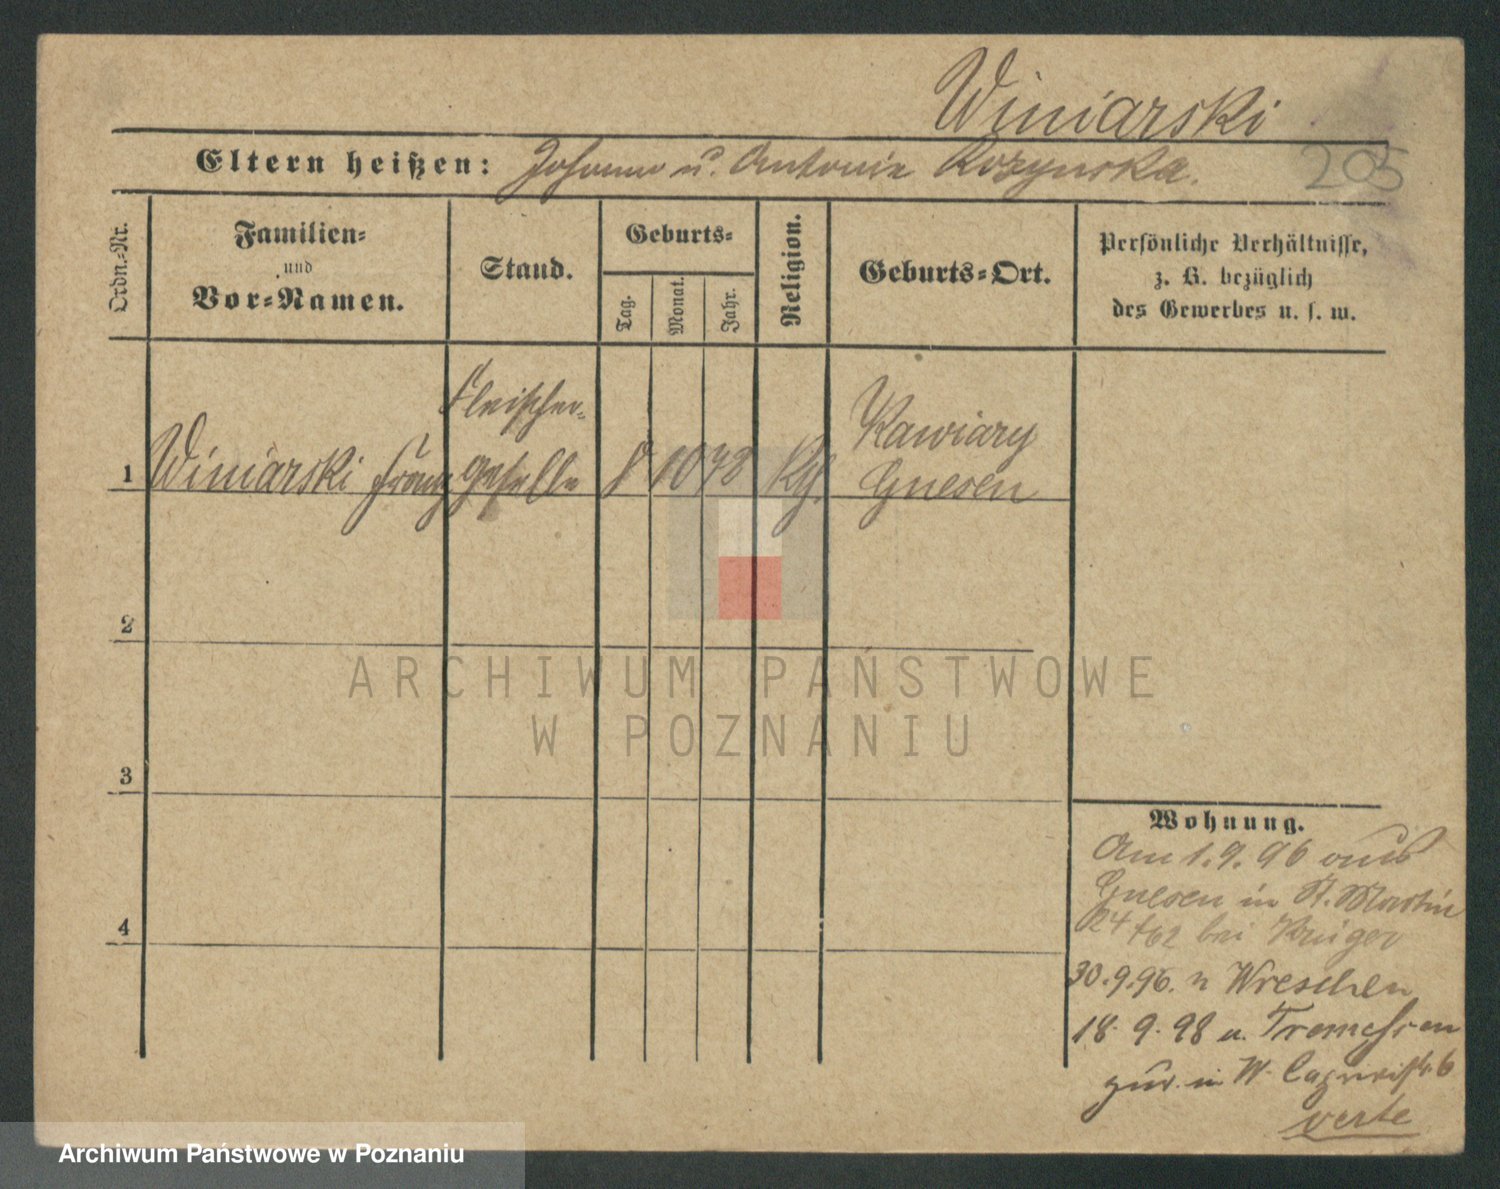 Winiarski
Eltern heißen: Johann u. Antonie Rozynska.
205
Ordn.-Nr.
Familien-
und
Vor-Namen.
Stand.
Geburts-
Tag.
Monat.
Jahr.
Religion.
Geburts-Ort.
Persönliche Verhältnisse,
z. B. bezüglich
des Gewerbes u. s. w.
1 Winiarski Franz
Fleischer-
Geselle
8 10 78
Kth.
Kawiary
Gnesen
2
3
4
Wohnung.
Am 1.9.96 aus
Gnesen in St. Martin
24 bei Krüger
30.9.96. n Wreschen
18. 9. 98 a. Tremessen
zur. in W. 6
verte
ARCHIWUM PAŃSTWOWE
W POZNANIU
Archiwum Państwowe w Poznaniu